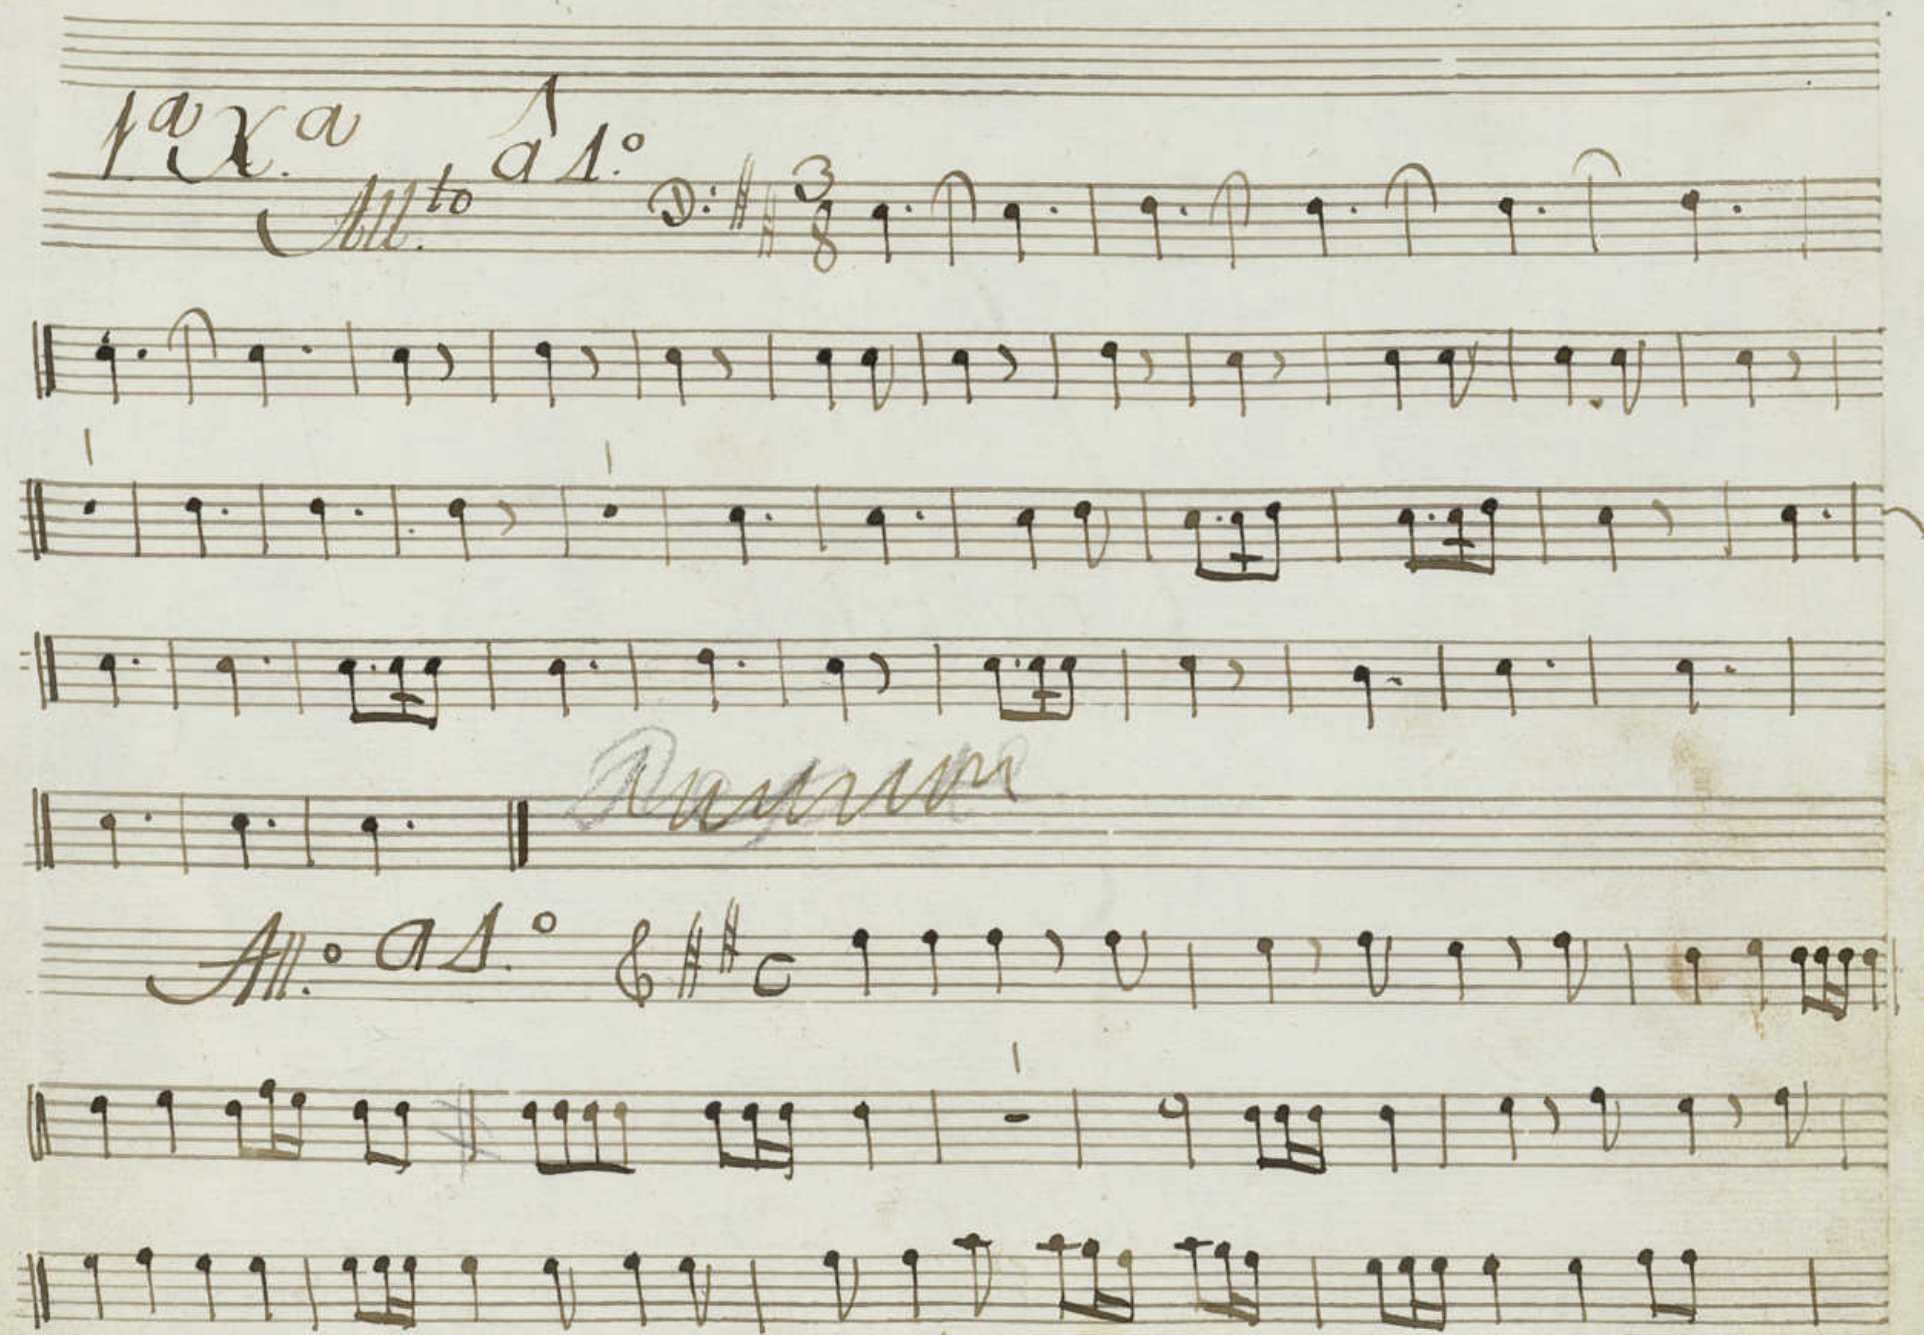 1ª X.ª
All.to a 1.º D: 3/8
All.º a 1.º C